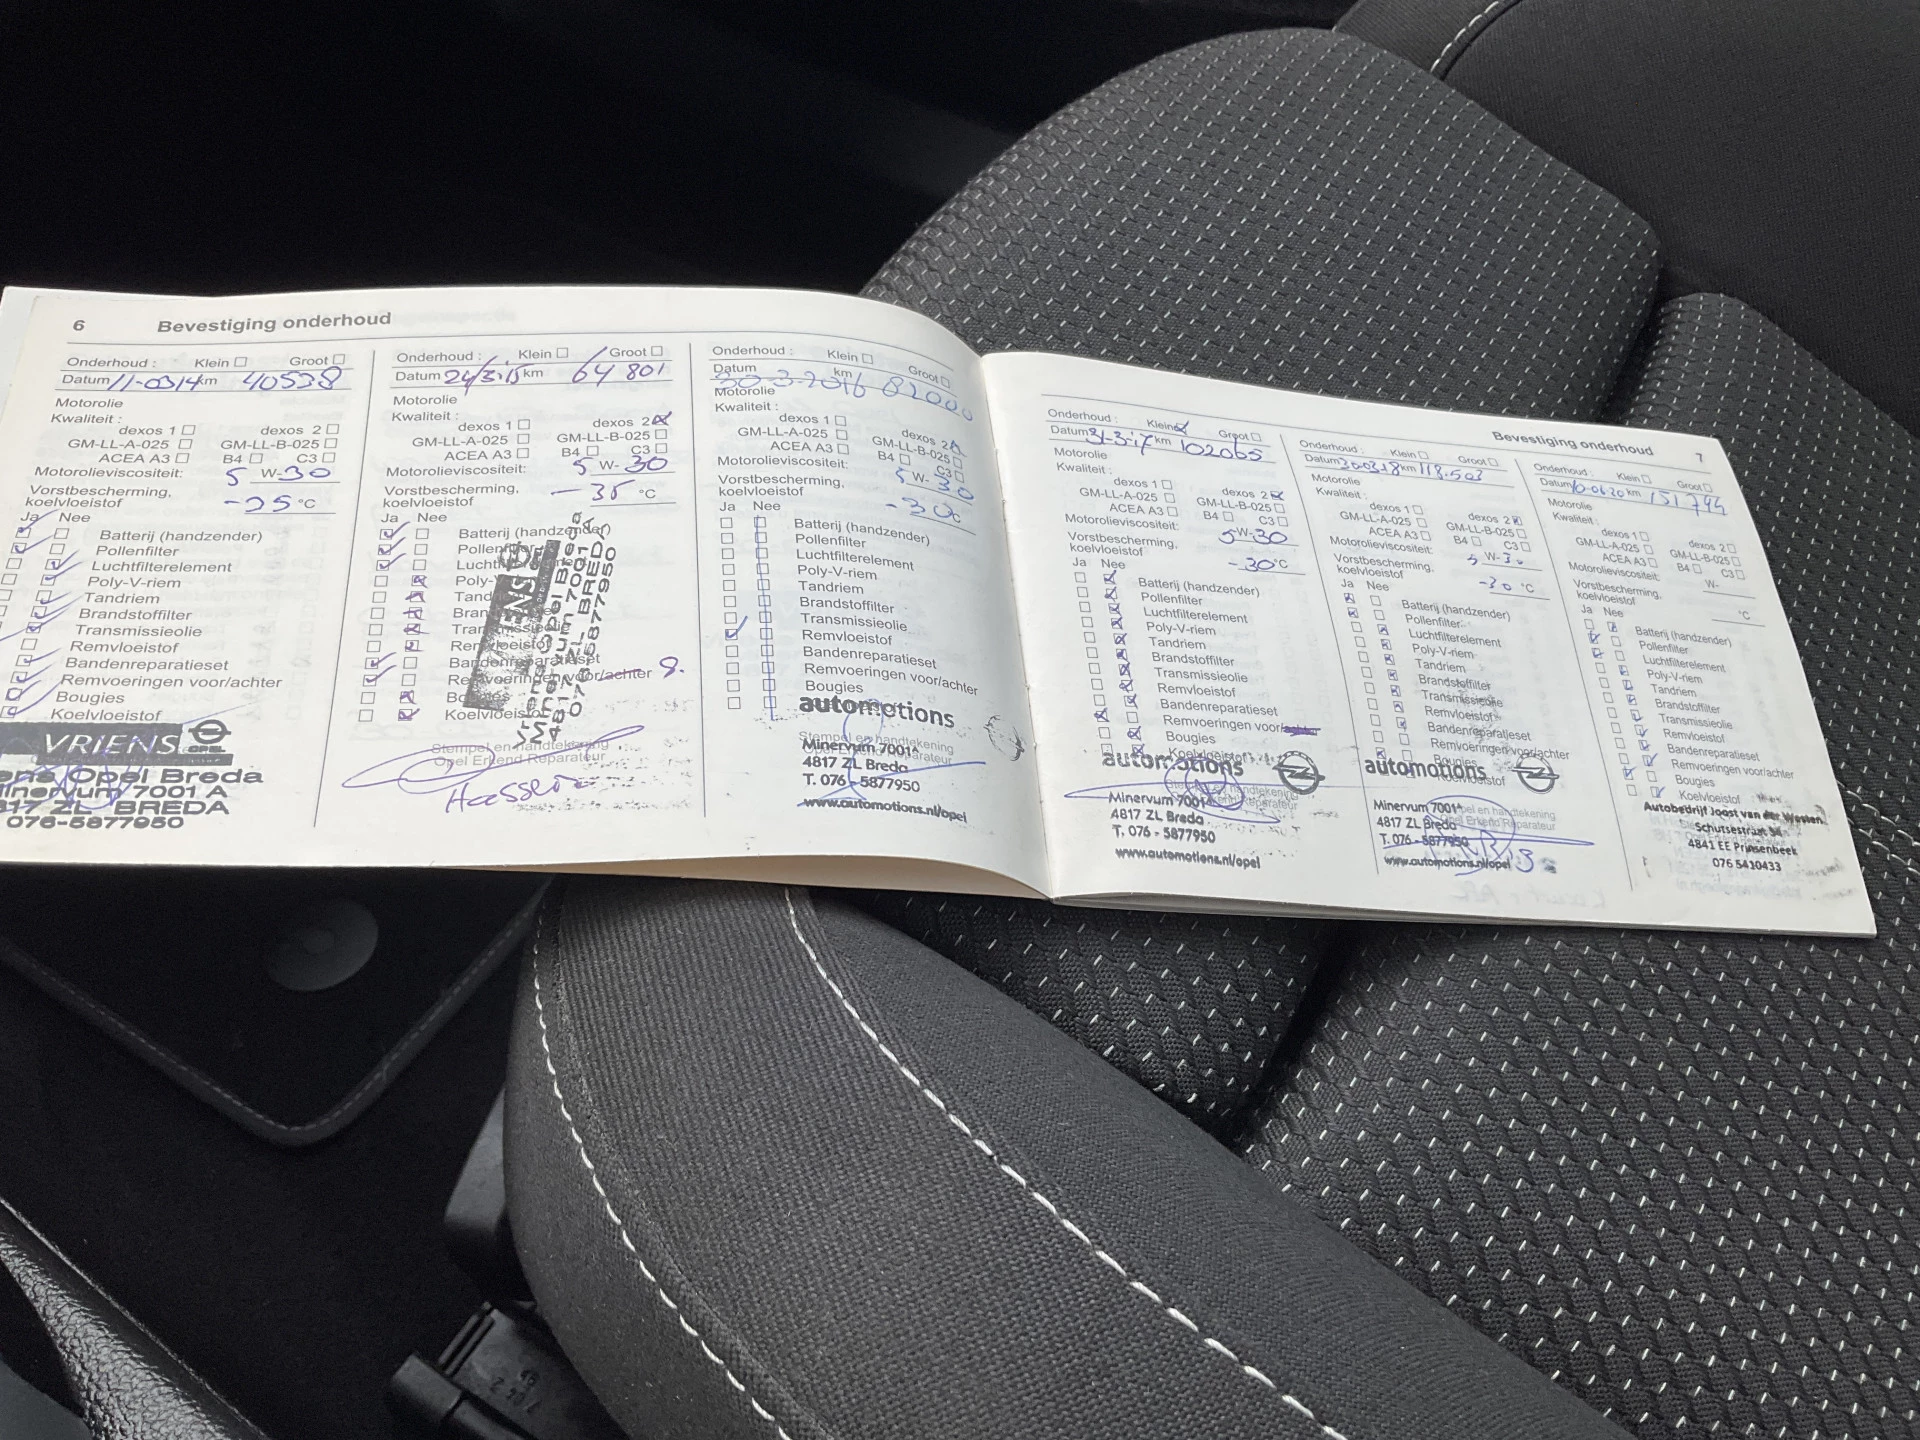 6 Bevestiging onderhoud
Onderhoud : Klein Groot
Datum 11-0314 km 40538
Motorolie
Kwaliteit :
dexos 1 dexos 2
GM-LL-A-025 GM-LL-B-025
ACEA A3 B4 C3
Motorolieviscositeit: 5 W-30
Vorstbescherming,
koelvloeistof °C
Ja Nee
Batterij (handzender)
Pollenfilter
Luchtfilterelement
Poly-V-riem
Tandriem
Brandstoffilter
Transmissieolie
Remvloeistof
Bandenreparatieset
Remvoeringen voor/achter
Bougies
Koelvloeistof
VRIENS OPEL
Opel Breda
7001 A
ZL BREDA
076-5877950
Onderhoud : Klein Groot
Datum 24/3-15 km 64 801
Motorolie
Kwaliteit :
dexos 1 dexos 2
GM-LL-A-025 GM-LL-B-025
ACEA A3 B4 C3
Motorolieviscositeit: 5 W-30
Vorstbescherming,
koelvloeistof -35 °C
Ja Nee
Batterij (handzender)
Koelvloeistof
Vriens Opel Breda
Minervum 7001
4817 ZL BREDA
076-5877950
Stempel en handtekening
Opel Erkend Reparateur
Onderhoud : Klein Groot
Datum 30-3-2016 km 82000
Motorolie
Kwaliteit :
dexos 1 dexos 2
GM-LL-A-025 GM-LL-B-025
ACEA A3 B4 C3
Motorolieviscositeit: 5 W-30
Vorstbescherming,
koelvloeistof -30 °C
Ja Nee
Batterij (handzender)
Pollenfilter
Luchtfilterelement
Poly-V-riem
Tandriem
Brandstoffilter
Transmissieolie
Remvloeistof
Bandenreparatieset
Remvoeringen voor/achter
Bougies
automotions
Minervum 7001A
4817 ZL Breda
T. 076 - 5877950
www.automotions.nl/opel
Bevestiging onderhoud 7
Onderhoud : Klein Groot
Datum 31-3-17 km 102065
Motorolie
Kwaliteit :
dexos 1 dexos 2
GM-LL-A-025 GM-LL-B-025
ACEA A3 B4 C3
Motorolieviscositeit: 5W-30
Vorstbescherming,
koelvloeistof -30 °C
Ja Nee
Batterij (handzender)
Pollenfilter
Luchtfilterelement
Poly-V-riem
Tandriem
Brandstoffilter
Transmissieolie
Remvloeistof
Bandenreparatieset
Remvoeringen voor/achter
Bougies
Koelvloeistof
automotions
Minervum 7001A
4817 ZL Breda
T. 076 - 5877950
www.automotions.nl/opel
Onderhoud : Klein Groot
Datum 300318 km 118.503
Motorolie
Kwaliteit :
dexos 1 dexos 2
GM-LL-A-025 GM-LL-B-025
ACEA A3 B4 C3
Motorolieviscositeit: 5 W-30
Vorstbescherming,
koelvloeistof -30 °C
Ja Nee
Batterij (handzender)
Pollenfilter
Luchtfilterelement
Poly-V-riem
Tandriem
Brandstoffilter
Transmissieolie
Remvloeistof
Bandenreparatieset
Remvoeringen voor/achter
Bougies
Koelvloeistof
automotions
Minervum 7001A
4817 ZL Breda
T. 076 - 5877950
www.automotions.nl/opel
Onderhoud : Klein Groot
Datum 10-06-20 km 151794
Motorolie
Kwaliteit :
dexos 1 dexos 2
GM-LL-A-025 GM-LL-B-025
ACEA A3 B4 C3
Motorolieviscositeit: W-
Vorstbescherming,
koelvloeistof °C
Ja Nee
Batterij (handzender)
Pollenfilter
Luchtfilterelement
Poly-V-riem
Tandriem
Brandstoffilter
Transmissieolie
Remvloeistof
Bandenreparatieset
Remvoeringen voor/achter
Bougies
Koelvloeistof
Autobedrijf Joost van der Westen
Schutsestraat
4841 EE Prinsenbeek
076 5410433